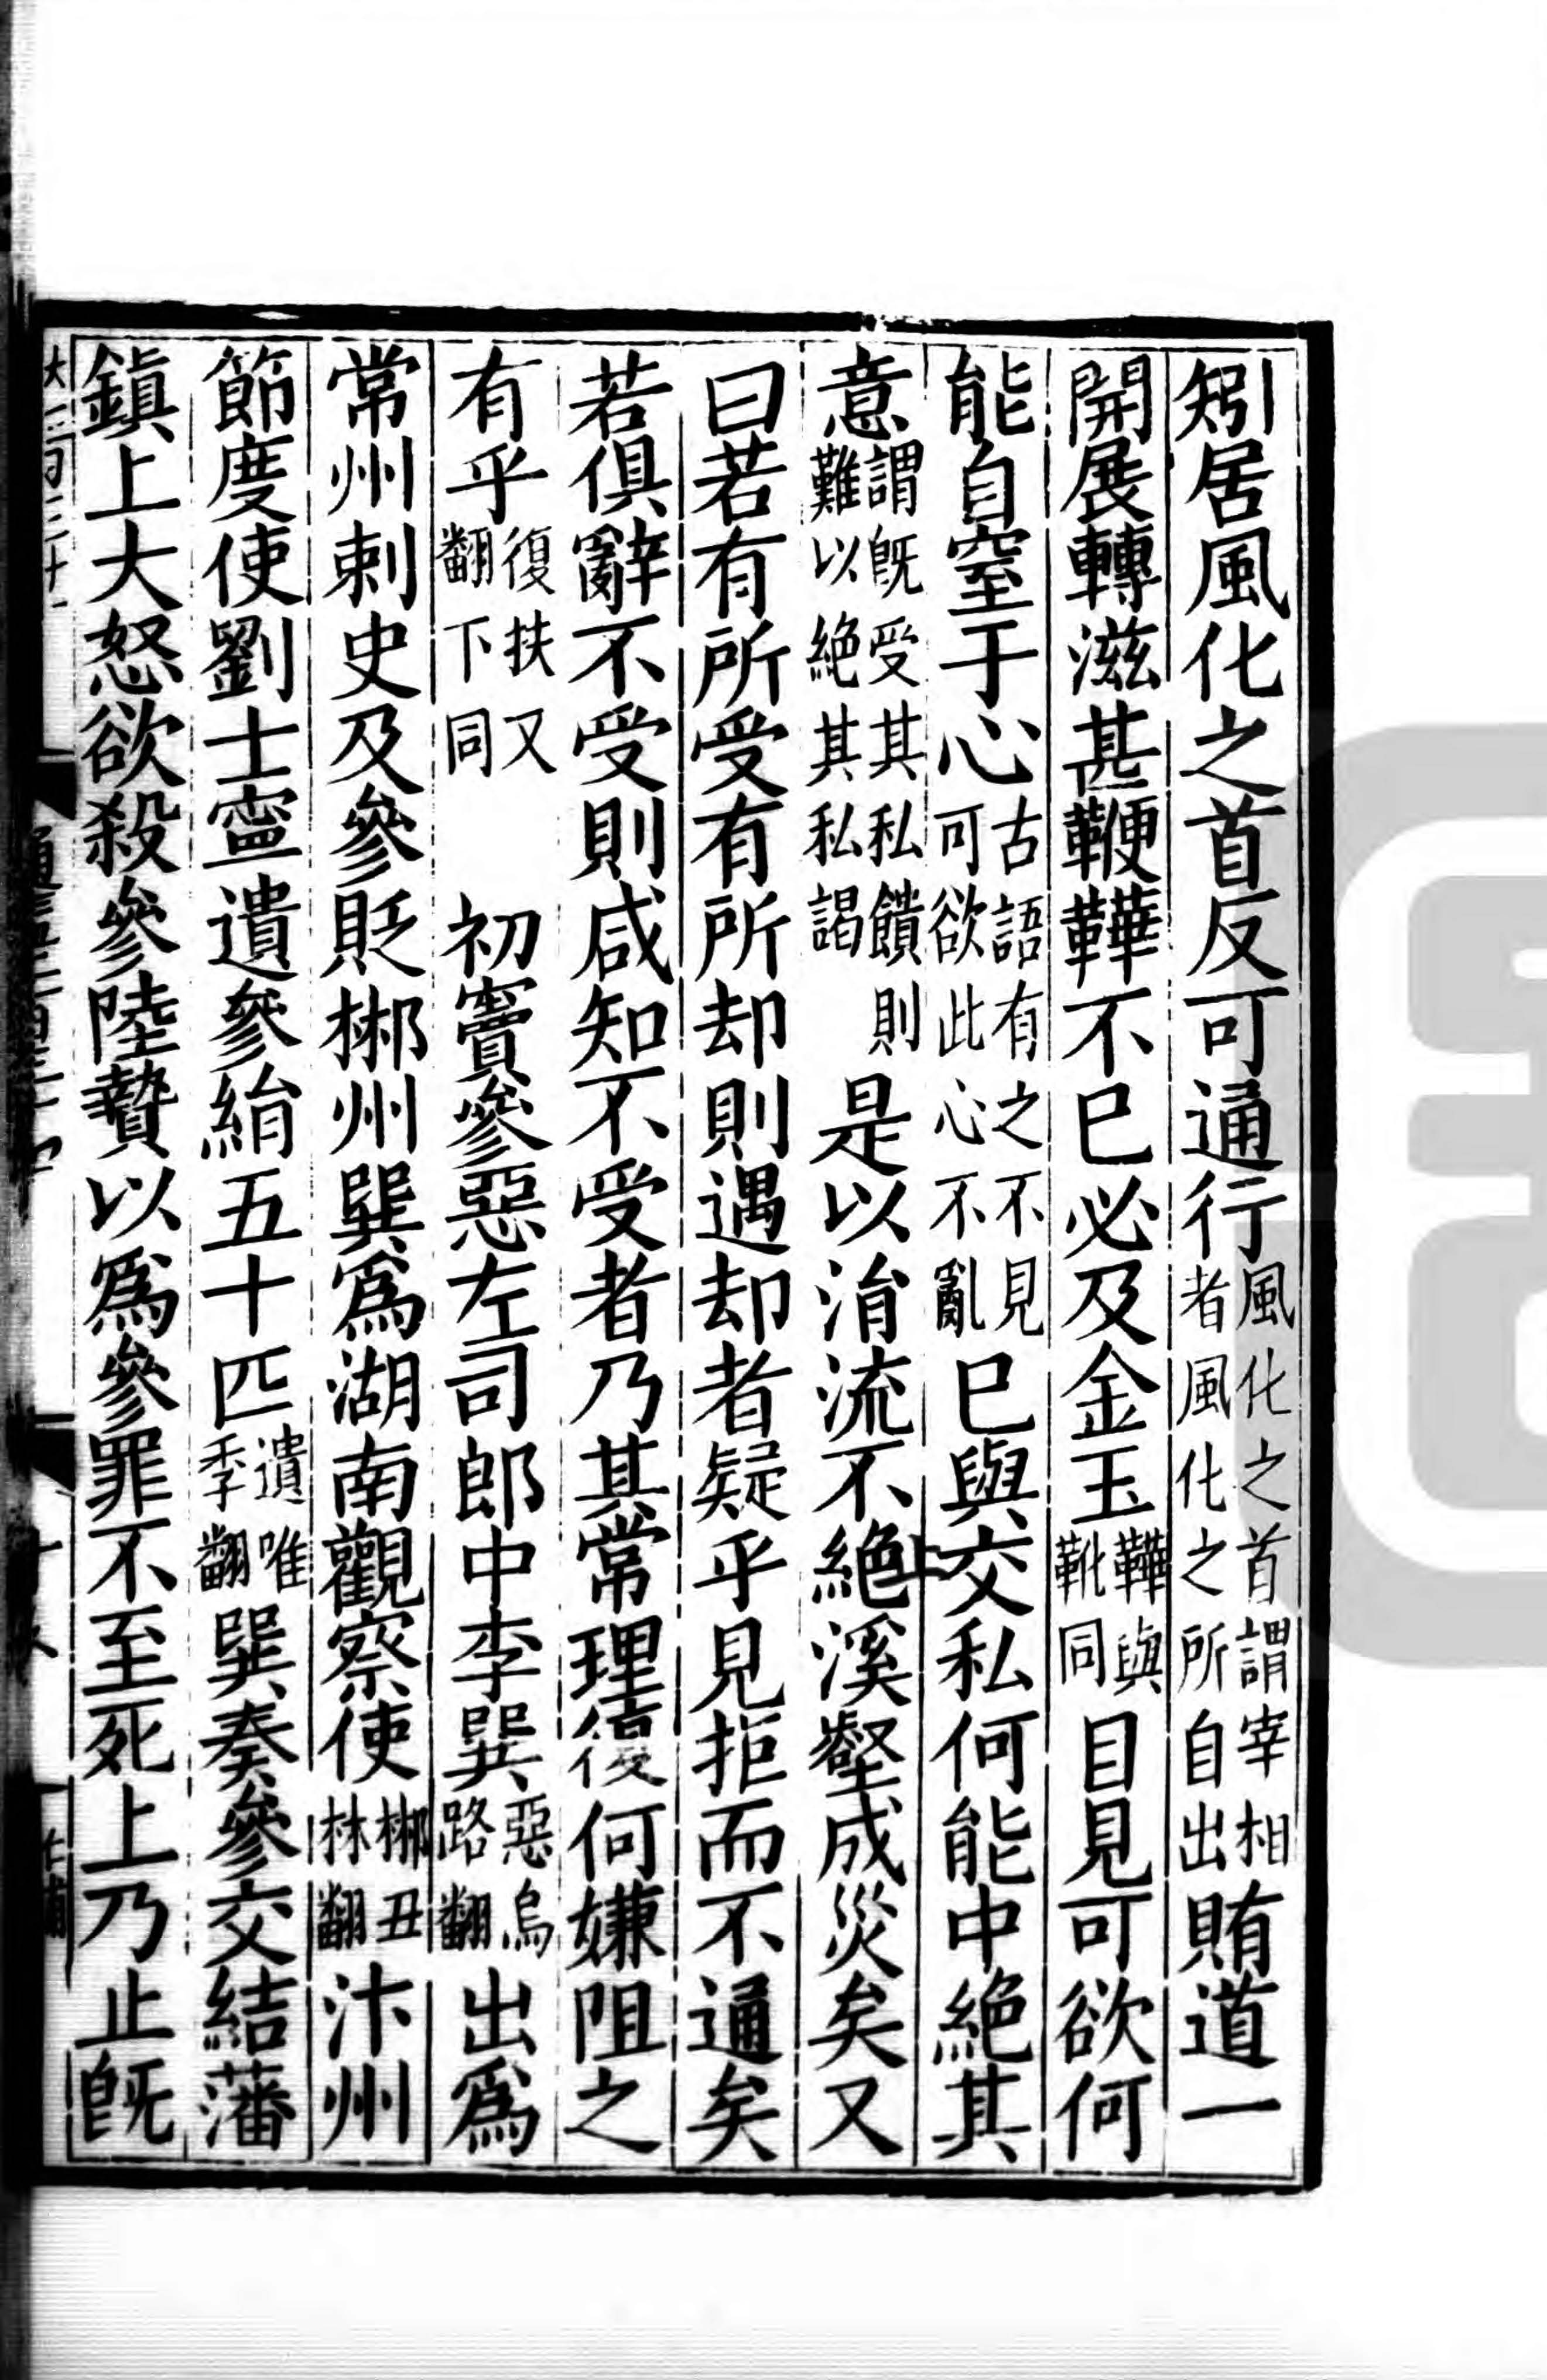 矧居風化之首反可通行風化之首謂宰相者風化之所自出賄道一
開展轉滋甚鞭鞾不已必及金玉鞾與靴同目見可欲何
能自窒于心古語有之不見可欲此心不亂已與交私何能中絶其
意謂既受其私饋則難以絶其私謁是以涓流不絶溪壑成災矣又
曰若有所受有所却則遇却者疑乎見拒而不通矣
若俱辭不受則咸知不受者乃其常理復何嫌阻之
有乎復扶又翻下同初竇參惡左司郎中李巽惡烏路翻出爲
常州剌史及參貶郴州巽爲湖南觀察使郴丑林翻汴州
節度使劉士寧遺參絹五十匹遺唯季翻巽奏參交結藩
鎮上大怒欲殺參陸贄以爲參罪不至死上乃止既